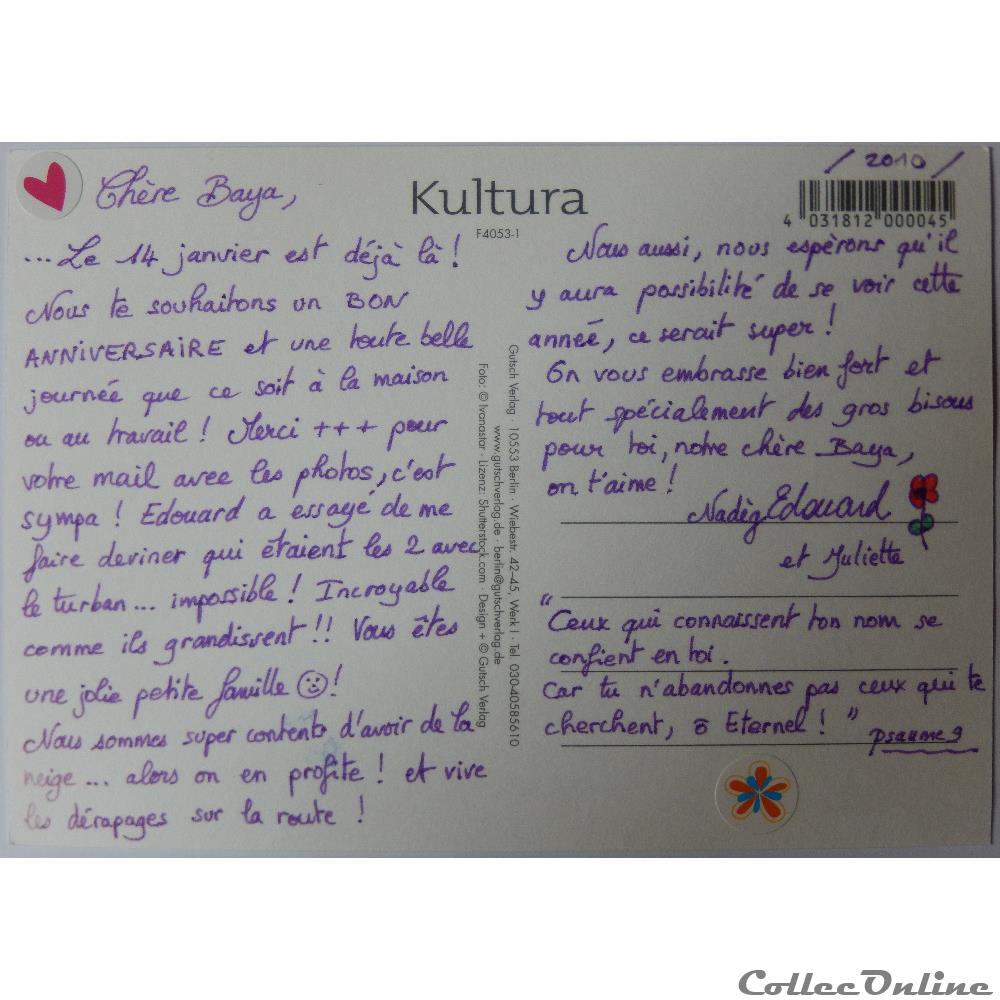 Chère Baya,
... Le 14 janvier est déjà là !
Nous te souhaitons un BON
ANNIVERSAIRE et une toute belle
journée que ce soit à la maison
ou au travail ! Merci +++ pour
votre mail avec les photos, c'est
sympa ! Edouard a essayé de me
faire deviner qui étaient les 2 avec
le turban... impossible ! Incroyable
comme ils grandissent !! Vous êtes
une jolie petite famille ☺ !
Nous sommes super contents d'avoir de la
neige... alors on en profite ! et vive
les dérapages sur la route !
Kultura
F4053-1
Foto: © Ivanastar · Lizenz: Shutterstock.com · Design + © Gutsch Verlag
www.gutschverlag.de · berlin@gutschverlag.de
Gutsch Verlag · 10553 Berlin · Wiebestr. 42–45, Werk I · Tel. 030-40585610
/ 2010 /
4 031812 000045
Nous aussi, nous espèrons qu'il
y aura possibilité de se voir cette
année, ce serait super !
On vous embrasse bien fort et
tout spécialement des gros bisous
pour toi, notre chère Baya,
on t'aime !
Nadèg Edouard
et Juliette
"Ceux qui connaissent ton nom se
confient en toi.
Car tu n'abandonnes pas ceux qui te
cherchent, ô Eternel ! "
Psaume 9
CollecOnline